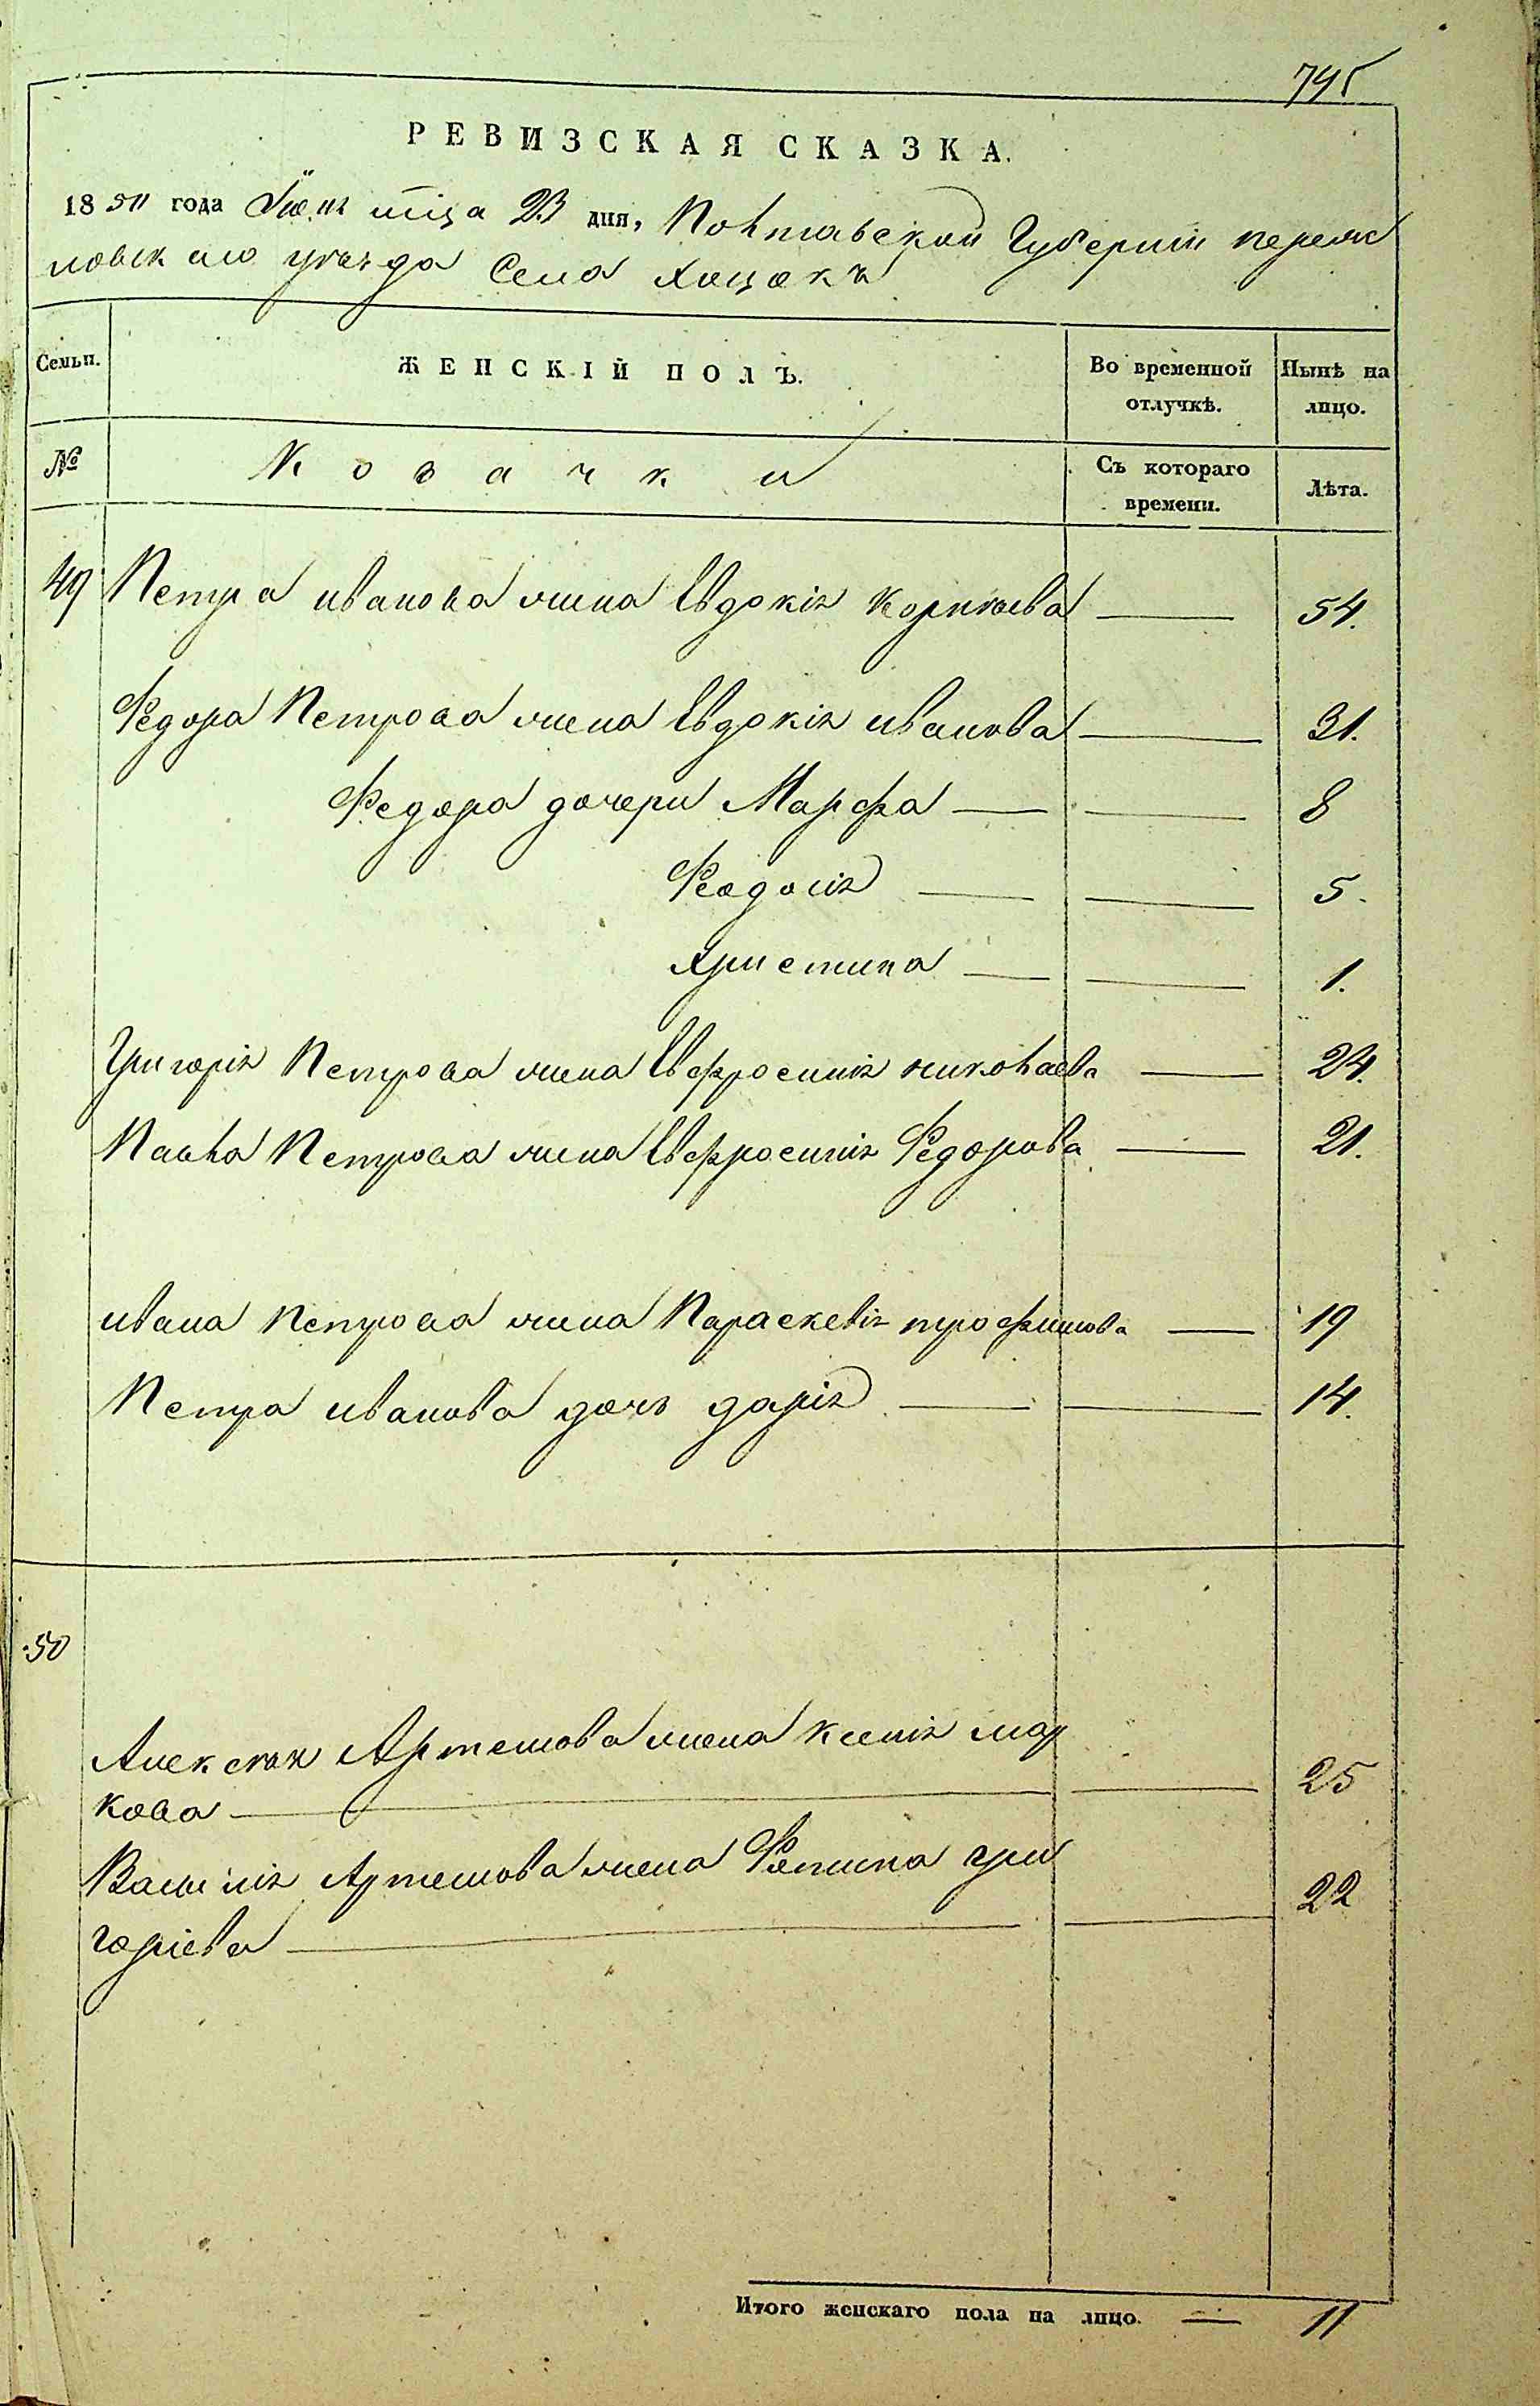 795
РЕВИЗСКАЯ СКАЗКА.
1850 года Іюня мца 23 дня, Полтавской Губерніи переяс
ловскаго уѣзда Села Хоцокъ
Семьи. ЖЕНСКІЙ ПОЛЪ. Во временной отлучкѣ. Нынѣ на лицо.
№ Козачки Съ котораго времени. Лѣта.
49 Петра иванова жена Евдокія Корнѣева — 54.
Федора Петрова жена Евдокія иванова — 31.
Федора дочери Марфа — — 8
Феодосія — — 5.
Христина — — 1.
Григорія Петрова жена Евфросинія николаева — 24.
Павла Петрова жена Евфросинія Федорова — 21.
ивана Петрова жена Параскевія трофимова — 19
Петра иванова дочь дарія — — 14.
50
Алексѣя Артемова жена Ксенія мар
кова — — 25
Василія Артемова жена Фотина гри
горіева — — 22
Итого женскаго пола на лицо. — 11